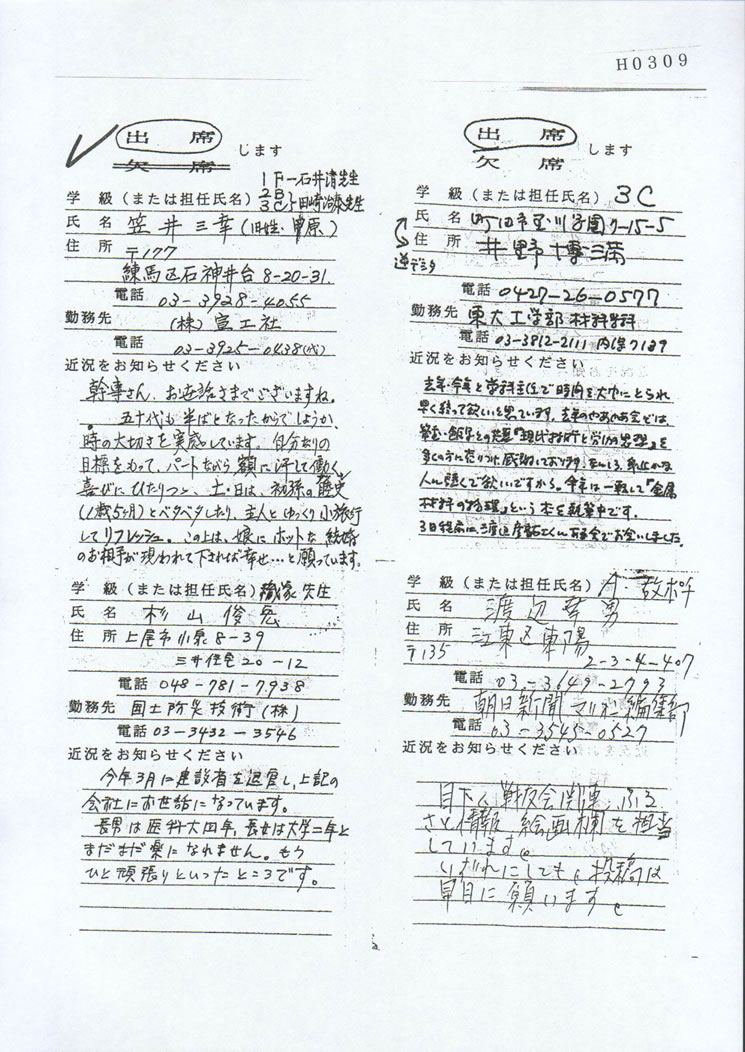 H0309
出席
欠席
じます
1F－石井清先生
2B
3C 田崎治泰先生
学級（または担任氏名）
氏名 笠井三幸（旧姓・曽原）
住所 〒177
練馬区石神井台8-20-31.
電話 03-3928-4055
勤務先 （株）宣工社
電話 03-3925-0438（代）
近況をお知らせください
幹事さん、お世話さまでございますね。
五十代も半ばとなったからでしょうか、
時の大切さを実感しています。自分なりの
目標をもって、パートながら額に汗して働く
喜びにひたりつつ、土・日は、初孫の
（1歳5ヶ月）とベタベタしたり、主人とゆっくり小旅行
してリフレッシュ。この上は、娘にホットな結婚
のお相手が現われて下されば幸せ…と願っています。
学級（または担任氏名） 先生
氏名 杉山俊宏
住所 上尾市小泉8-39
三井住宅20-12
電話 048-781-7938
勤務先 国土防災技術（株）
電話 03-3432-3546
近況をお知らせください
今年3月に建設省を退官し、上記の
会社にお世話になっています。
長男は医科大四年、長女は大学二年と
まだまだ楽になれません。もう
ひと頑張りといったところです。
出席
欠席
します
学級（または担任氏名）3C
氏名 町田市玉川学園7-15-5
住所 井野博満
逆デシタ
電話 0427-26-0577
勤務先 東大工学部材料学科
電話 03-3812-2111 内線7129
近況をお知らせください
去年・今年と学科主任で時間を大巾にとられ
早く終って欲しいと思っています。去年のやあやあ会では
『現代技術と労働の思想』を
多くの方に売りつけ感謝しております。
人に聴くで欲しいですから。今年は一転して『金属
材料の物理』という本を執筆中です。
学級（または担任氏名）A
氏名 渡辺幸男
住所 江東区東陽
〒135
2-3-4-407
電話 03-3649-2793
勤務先 朝日新聞マリオン編集部
電話 03-3545-0527
近況をお知らせください
目下、戦友会関連、ふる
さと情報、絵画欄を担当
しています。
いずれにしても、投稿は
早目に願います。